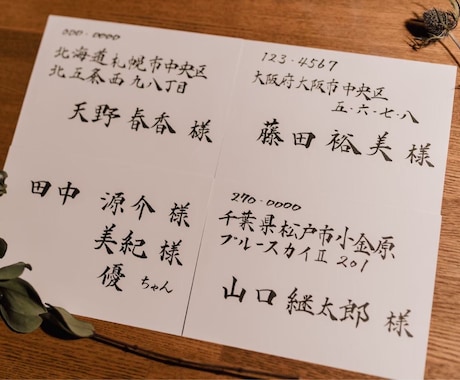 000-0000
北海道札幌市中央区
北五条西九八丁目
天野春香 様
123-4567
大阪府大阪市中央区
五・六・七・八
藤田裕美 様
田中 源介 様
美紀 様
優 ちゃん
270-0000
千葉県松戸市小金原
ブルースカイⅡ 201
山口継太郎 様